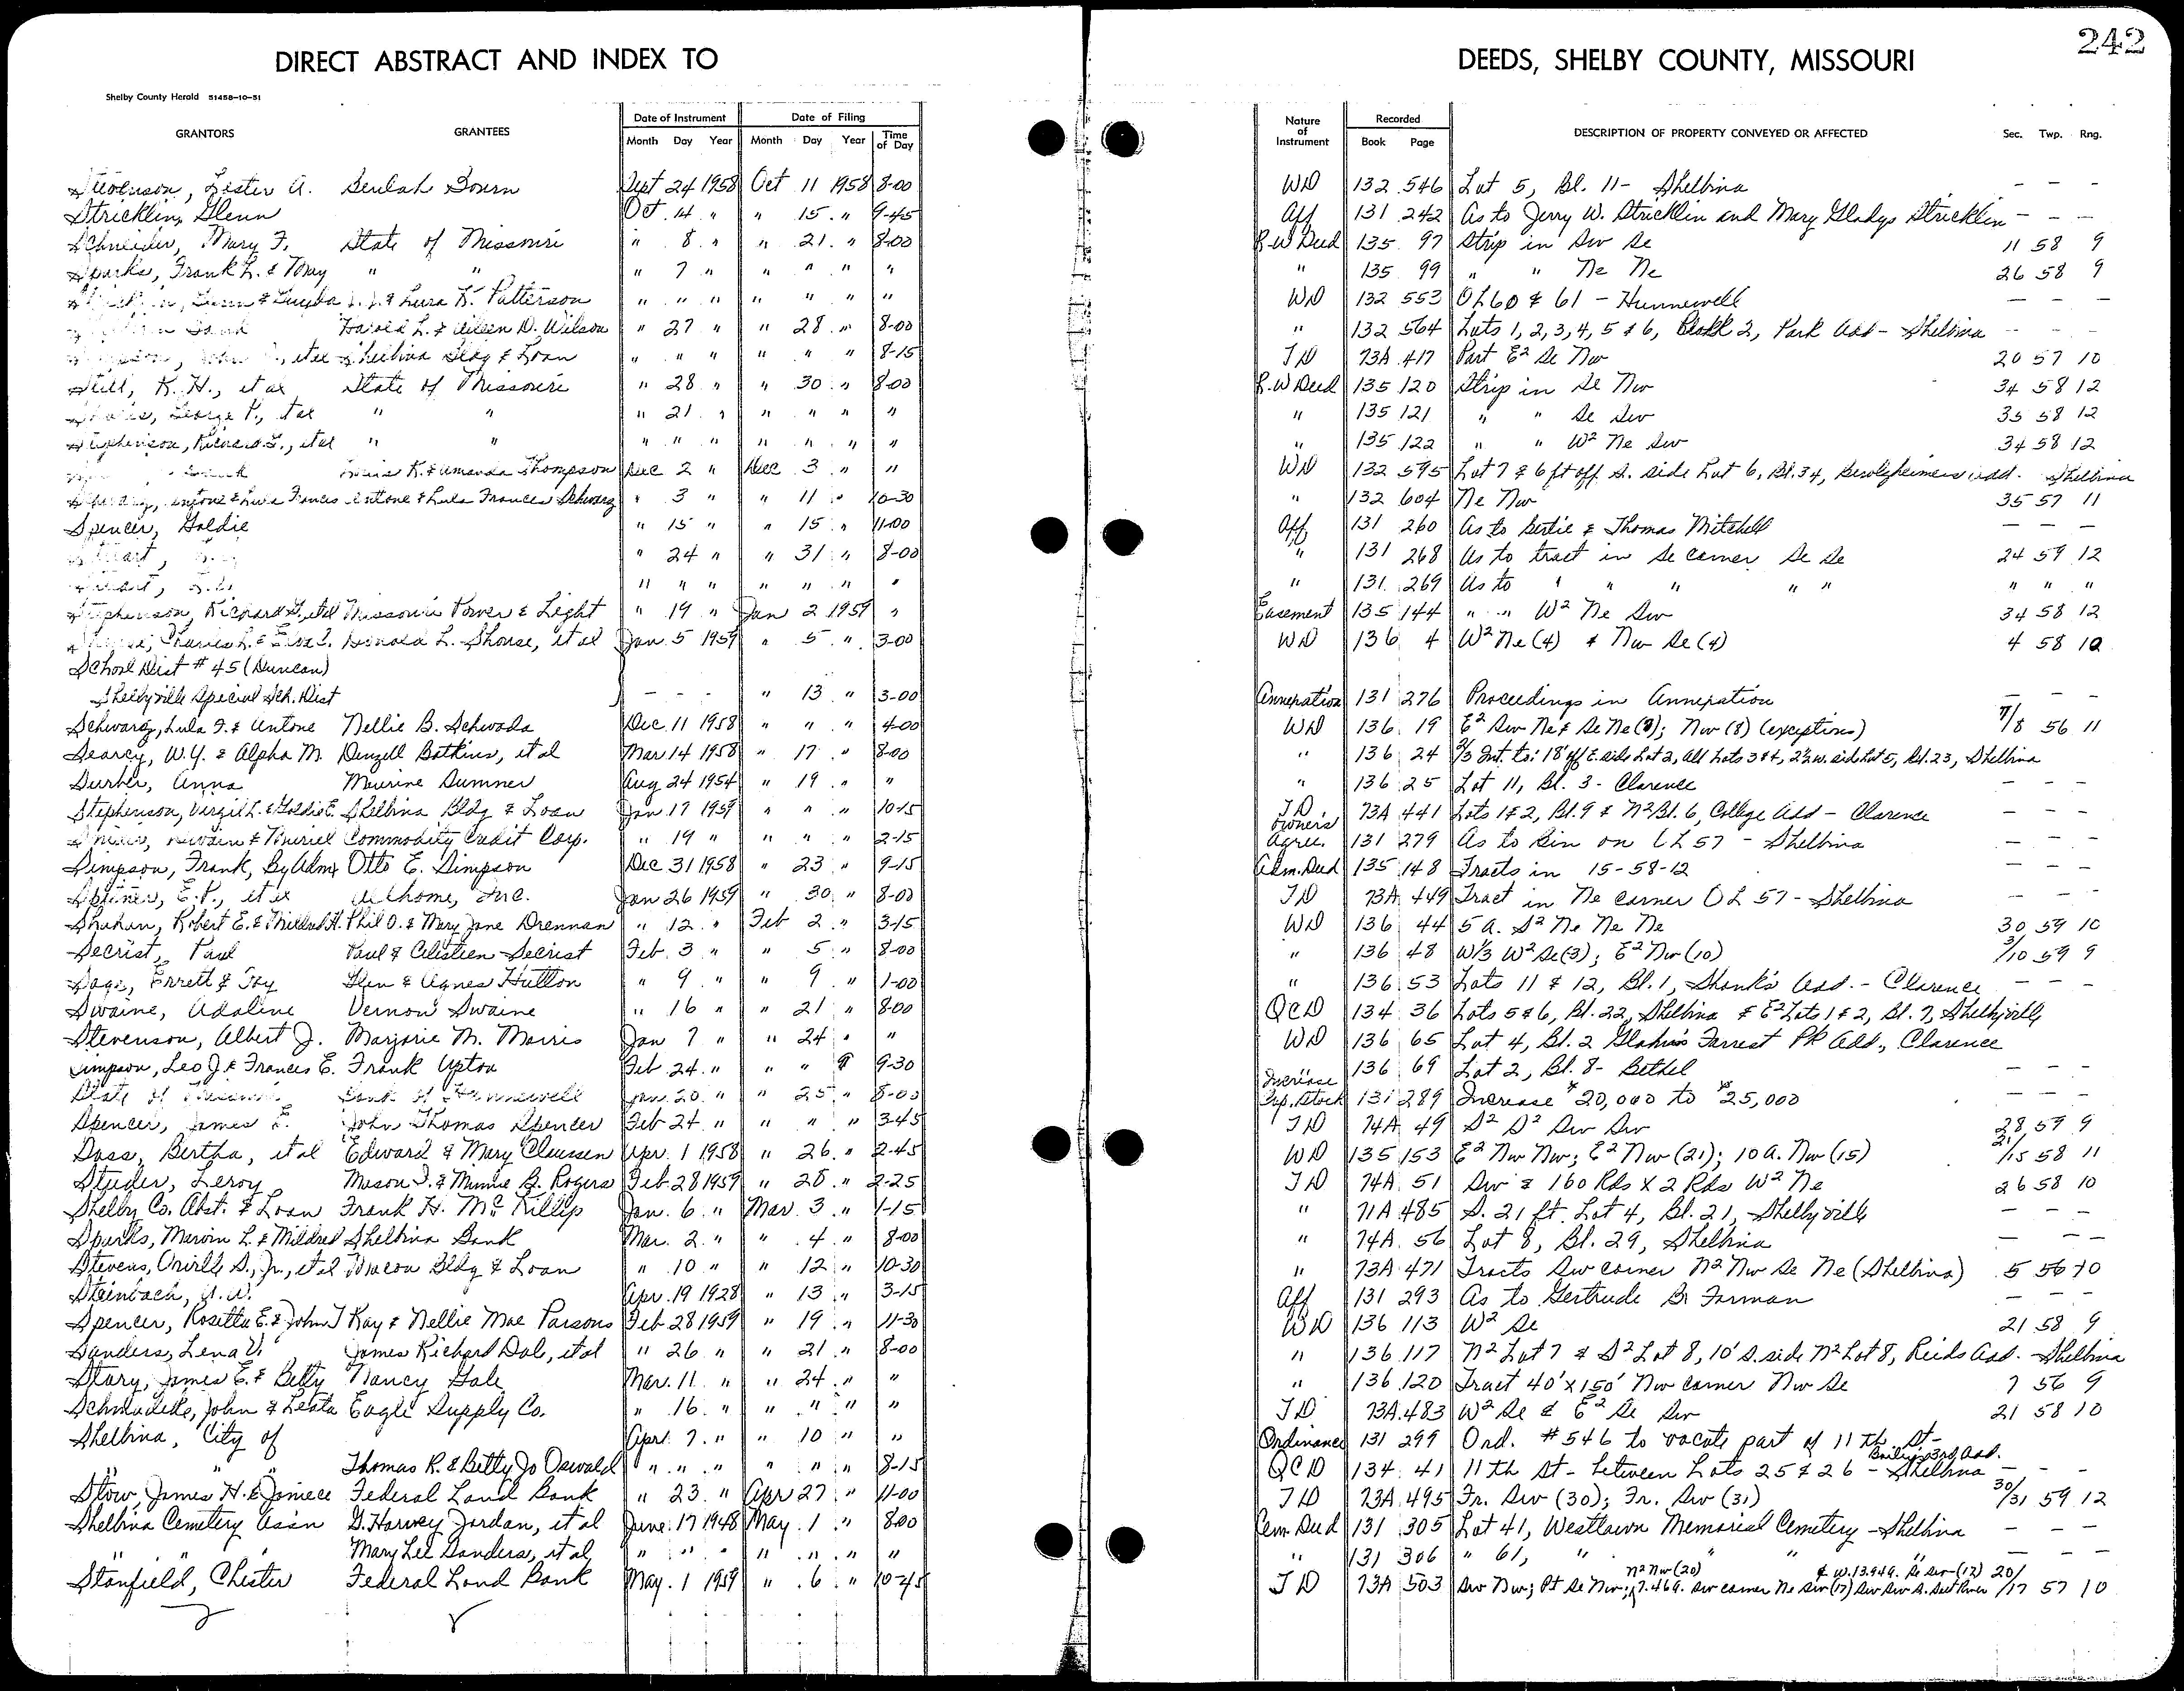 242
DIRECT ABSTRACT AND INDEX TO DEEDS, SHELBY COUNTY, MISSOURI
Shelby County Herald 51458-10-51
GRANTORS GRANTEES Date of Instrument Date of Filing Nature of Instrument Recorded DESCRIPTION OF PROPERTY CONVEYED OR AFFECTED Sec. Twp. Rng.
Month Day Year Month Day Year Time of Day Book Page
Stevenson, Lester A. Beulah Bourn Sept 24 1958 Oct 11 1958 8-00 WD 132 546 Lot 5, Bl. 11- Shelbina — — —
Stricklin, Glenn Oct. 14 " " 15 " 9-45 Aff 131 242 As to Jerry W. Stricklin and Mary Gladys Stricklin — — —
Schneider, Mary F. State of Missouri " 8 " " 21 " 8-00 R-W Deed 135 97 Strip in Sw Se 11 58 9
Sparks, Frank L. & May " " " 7 " " " " " " 135 99 " " Ne Ne 26 58 9
& Lura K. Patterson " " " " " " " WD 132 553 OL 60 & 61 - Hunnewell — — —
Bank Harold L. & Aileen D. Wilson " 27 " " 28 " 8-00 " 132 564 Lots 1, 2, 3, 4, 5 & 6, Block 2, Park Add - Shelbina — — —
et ux Shelbina Bldg & Loan " " " " " " 8-15 TD 73A 417 Part E² Se Nw 20 57 10
Still, K. H., et ux State of Missouri " 28 " " 30 " 8-00 R-W Deed 135 120 Strip in Se Nw 34 58 12
George P., et al " " " 21 " " " " " " 135 121 " " Se Sw 35 58 12
Stephenson, Richard G., et al " " " " " " " " " " 135 122 " " W² Ne Sw 34 58 12
K. & Amanda Thompson Dec 2 " Dec 3 " " WD 132 595 Lot 7 & 6 ft off S. side Lot 6, Bl. 34, Add. Shelbina
Schwarz, Antone & Lula Frances Antone & Lula Frances Schwarz " 3 " " 11 " 10-30 " 132 604 Ne Nw 35 57 11
Spencer, Goldie " 15 " " 15 " 11-00 Aff 131 260 As to Bertie & Thomas Mitchell — — —
" 24 " " 31 " 8-00 " 131 268 As to tract in Se corner Se Se 24 59 12
" " " " " " " " 131 269 As to " " " " " " " "
Stephenson, Richard G., et al Missouri Power & Light " 19 " Jan 2 1959 " Easement 135 144 " " W² Ne Sw 34 58 12
Shouse, Charles L. & Donald L. Shouse, et al Jan. 5 1959 " 5 " 3-00 WD 136 4 W² Ne (4) & Nw Se (4) 4 58 10
School Dist #45 (Duncan)
Shelbyville Special Sch. Dist - - - " 13 " 3-00 Annexation 131 276 Proceedings in Annexation — — —
Schwarz, Lula F. & Antone Nellie B. Schwada Dec. 11 1958 " " " 4-00 WD 136 19 E² Sw Ne & Se Ne; Nw (8) (exceptions) 7/8 56 11
Searcy, W. Y. & Alpha M. Denzell Botkins, et al Mar 14 1958 " 17 " 8-00 " 136 24 Int. to: 18' off E. side Lot 2, All Lots 3 & 4, w. side Lot 5, Bl. 23, Shelbina
Surber, Anna Maurine Sumner Aug 24 1954 " 19 " " " 136 25 Lot 11, Bl. 3 - Clarence — — —
Stephenson, Virgil L. & Goldie E. Shelbina Bldg & Loan Jan. 17 1959 " " " 10-15 TD 73A 441 Lots 1 & 2, Bl. 9 & N² Bl. 6, College Add - Clarence — — —
& Muriel Commodity Credit Corp. " 19 " " " " 2-15 Owner's Agree. 131 279 As to Bin on OL 57 - Shelbina — — —
Simpson, Frank, By Admx Otto E. Simpson Dec 31 1958 " 23 " 9-15 Adm. Deed 135 148 Tracts in 15-58-12 — — —
E. P., et ux Athome, Inc. Jan 26 1959 " 30 " 8-00 TD 73A 449 Tract in Ne corner OL 57 - Shelbina — — —
Shuhan, Robert E. & Mildred H. Phil O. & Mary Jane Drennan " 12 " Feb 2 " 3-15 WD 136 44 5 a. S² Ne Ne Ne 30 59 10
Secrist, Paul Paul & Celistien Secrist Feb. 3 " " 5 " 8-00 " 136 48 W⅓ W² Se (3); E² Nw (10) 3/10 59 9
Sage, Errett & Fay Glen & Agnes Hutton " 9 " " 9 " 1-00 " 136 53 Lots 11 & 12, Bl. 1, Shank's Add. - Clarence — — —
Swaine, Adaline Vernon Swaine " 16 " " 21 " 8-00 QCD 134 36 Lots 5 & 6, Bl. 22, Shelbina & E² Lots 1 & 2, Bl. 7, Shelbyville
Stevenson, Albert J. Marjorie M. Morris Jan 7 " " 24 " " WD 136 65 Lot 4, Bl. 2 Forrest Pk Add., Clarence
Simpson, Leo J. & Frances E. Frank Upton Feb. 24 " " " " 9-30 136 69 Lot 2, Bl. 8 - Bethel — — —
State of Missouri Bank of Hunnewell Jan. 20 " " 25 " 8-00 Increase Cap. Stock 131 289 Increase $20,000 to $25,000 — — —
Spencer, James E. John Thomas Spencer Feb 24 " " " " 3-45 TD 74A 49 S² S² Sw Sw 28 59 9
Sass, Bertha, et al Edward & Mary Claussen Apr. 1 1958 " 26 " 2-45 WD 135 153 E² Nw Nw; E² Nw (21); 10 a. Nw (15) 21/15 58 11
Studer, Leroy Mason I. & Minnie B. Rogers Feb. 28 1959 " 28 " 2-25 TD 74A 51 Sw & 160 Rds x 2 Rds W² Ne 26 58 10
Shelby Co. Abst. & Loan Frank H. McKillip Jan. 6 " Mar. 3 " 1-15 " 71A 485 S. 21 ft. Lot 4, Bl. 21, Shelbyville — — —
Sparks, Marvin L. & Mildred Shelbina Bank Mar. 2 " " 4 " 8-00 " 74A 56 Lot 8, Bl. 29, Shelbina — — —
Stevens, Orville S., Jr., et al Macon Bldg & Loan " 10 " " 12 " 10-30 " 73A 471 Tracts Sw corner N² Nw Se Ne (Shelbina) 5 56 10
Steinbach, Apr. 19 1928 " 13 " 3-15 Aff 131 293 As to Gertrude B. Forman — — —
Spencer, Rosetta E. & John T Ray & Nellie Mae Parsons Feb 28 1959 " 19 " 11-30 WD 136 113 W² Se 21 58 9
Sanders, Lena V. James Richard Dale, et al " 26 " " 21 " 8-00 " 136 117 N² Lot 7 & S² Lot 8, 10' S. side N² Lot 8, Reids Add. Shelbina
Story, James E. & Betty Nancy Gale Mar. 11 " " 24 " " " 136 120 Tract 40' x 150' Nw corner Nw Se 7 56 9
John & Leata Eagle Supply Co. " 16 " " " " " TD 73A 483 W² Se & E² Se Sw 21 58 10
Shelbina, City of Apr. 7 " " 10 " " Ordinance 131 299 Ord. #546 to vacate part of 11th St-
" " Thomas R. & Betty Jo Oswald " " " " " " 8-15 QCD 134 41 11th St - between Lots 25 & 26 - 3rd Add. Shelbina — — —
Stow, James H. & Janiece Federal Land Bank " 23 " Apr 27 " 11-00 TD 73A 495 Fr. Sw (30); Fr. Sw (31) 30/31 59 12
Shelbina Cemetery Ass'n G. Harvey Jordan, et al June 17 1948 May 1 " 8-00 Cem. Deed 131 305 Lot 41, Westlawn Memorial Cemetery - Shelbina — — —
" " Mary Lee Sanders, et al " " " " " " " " 131 306 " 61, " " " " — — —
Stanfield, Chester Federal Land Bank May 1 1959 " 6 " 10-45 TD 73A 503 Sw Nw; Pt Se Nw; N² Nw (20) 7.46a. Sw corner Ne Sw (17) & W. 13.94a. Se Sw (17) 20/17 57 10